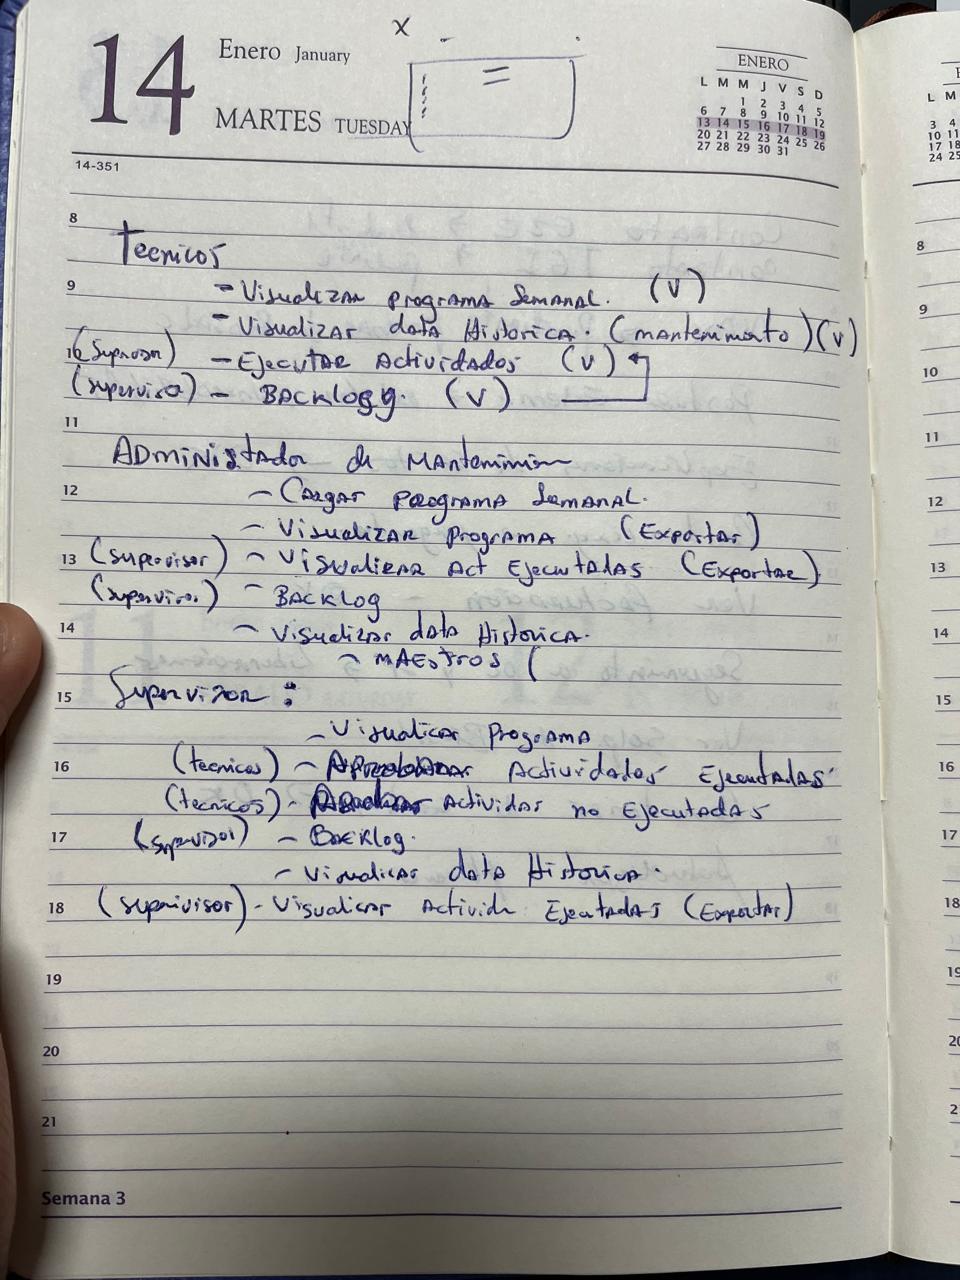 x
14
Enero January
MARTES TUESDAY
14-351
ENERO
L M M J V S D
1 2 3 4 5
6 7 8 9 10 11 12
13 14 15 16 17 18 19
20 21 22 23 24 25 26
27 28 29 30 31
8
Tecnicos
9
- Visualizar programa Semanal. (V)
- Visualizar data Historica. (mantenimiento) (V)
10
(Supervisor) - Ejecutar Actividades (V)
(supervisor) - Backlogg. (V)
11
Administador de
12
- Cargar programa Semanal.
- Visualizar programa (Exportar)
13 (supervisor) - Visualizar Act Ejecutadas (Exportar)
(supervisor) - Backlog
14
- Visualizar data Historica.
- Maestros (
15
Supervisor :
- Visualizar Programa
16
(tecnicos) - Actividades Ejecutadas
(tecnicos) - Actividas no Ejecutadas
17
(supervisor) - Backlog.
- Visualizar data Historica.
18 (supervisor) - Visualizar Ejecutadas (Exportar)
19
20
21
Semana 3
L M
3 4
10 11
17 18
24 25
8
9
10
11
12
13
14
15
16
17
18
19
20
21